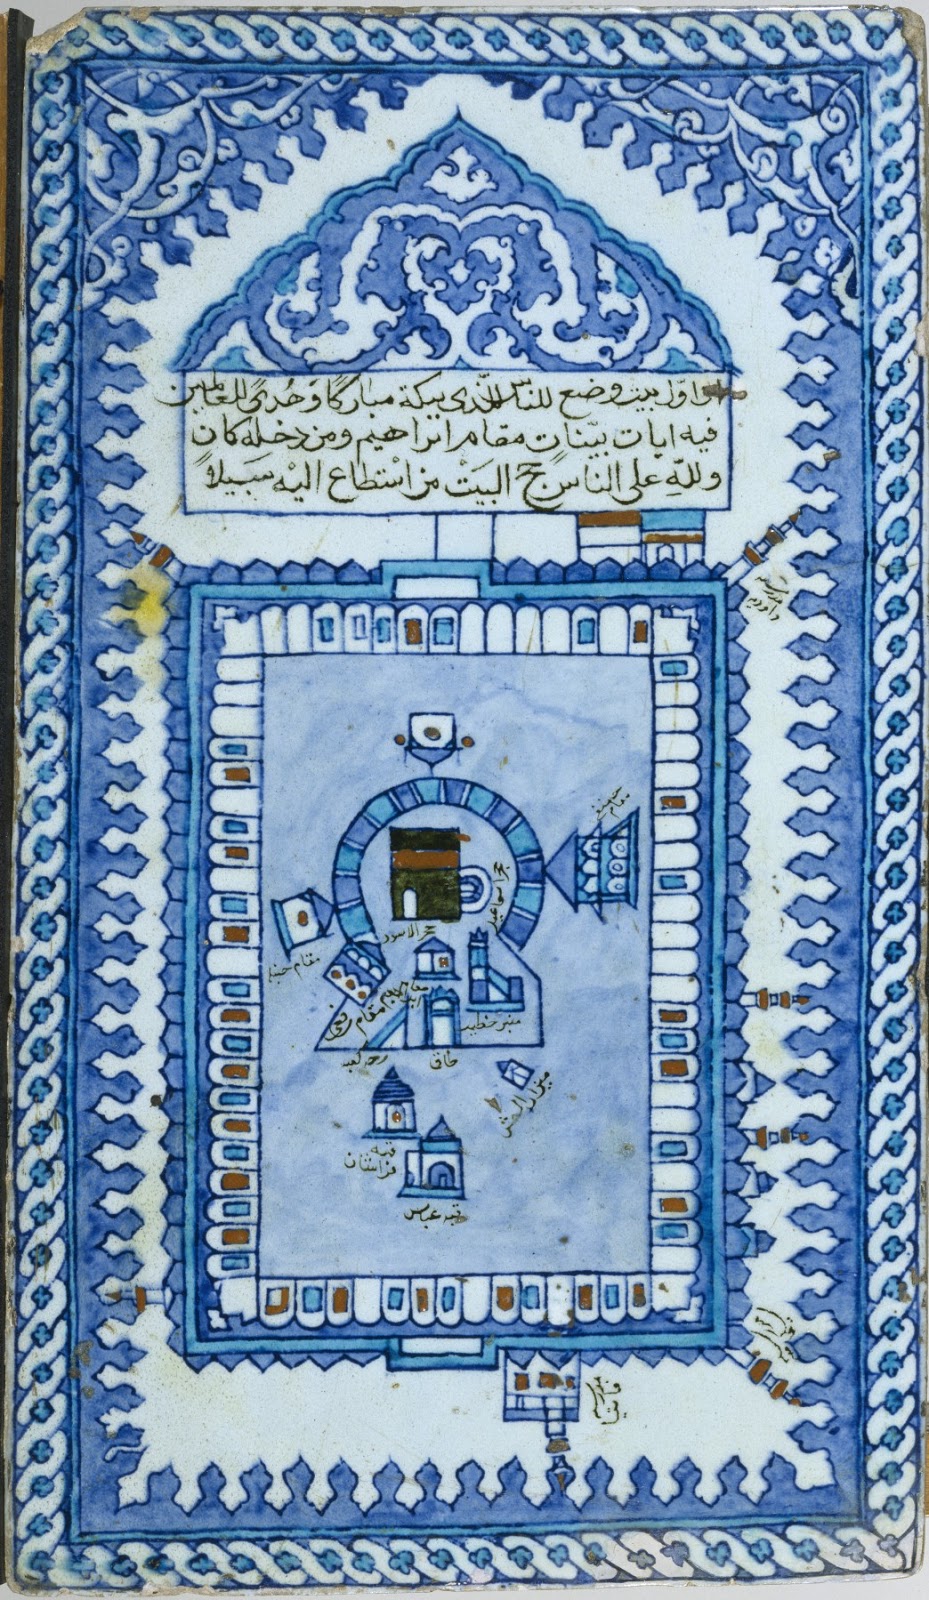 اوّل بيت وضع للناس للّذى ببكة مباركًا وَهُدًى للعالمين
فيه ايات بيّنات مقام ابراهيم ومن دخله كان
وللّهِ على الناس حج البيَتْ من اسْتطاع اليْه سبيلاً
مقام
حجر اسماعيل
حجر الاسود
مقام
مقام ابراهيم
مقام
منبر خطيب
طاق
كعبه
قبه
فراشان
قبه عباس
مدرسه